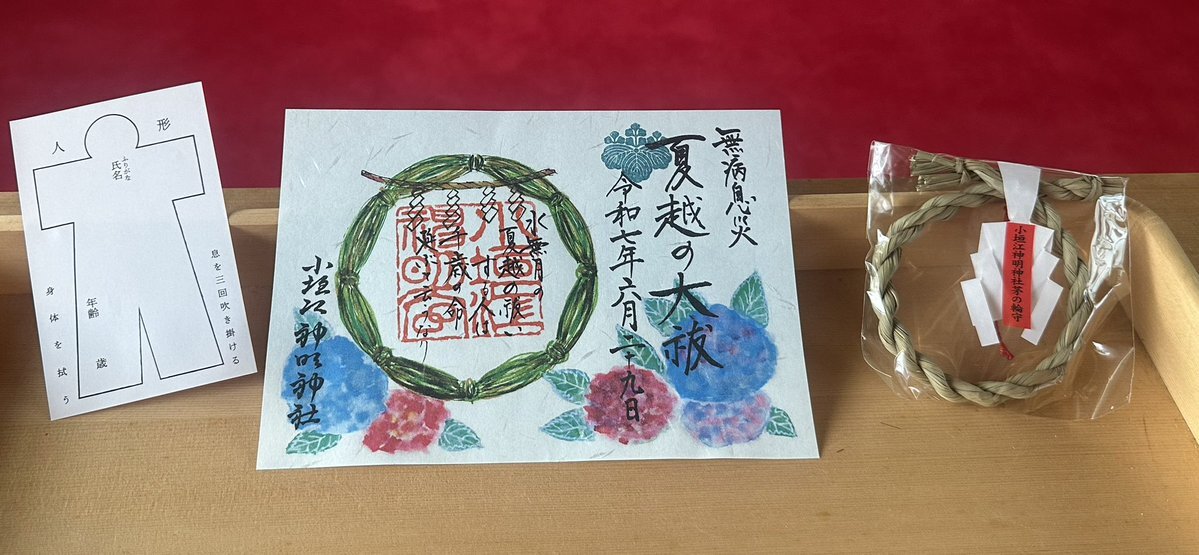 人形
ふりがな
氏名
年齢 歳
息を三回吹き掛ける
身体を拭う
無病息災
夏越の大祓
令和七年六月二十九日
水無月の
夏越の祓い
する人は
千歳の命
延ぶと
小垣江神明神社
小垣江神明神社茅の輪守